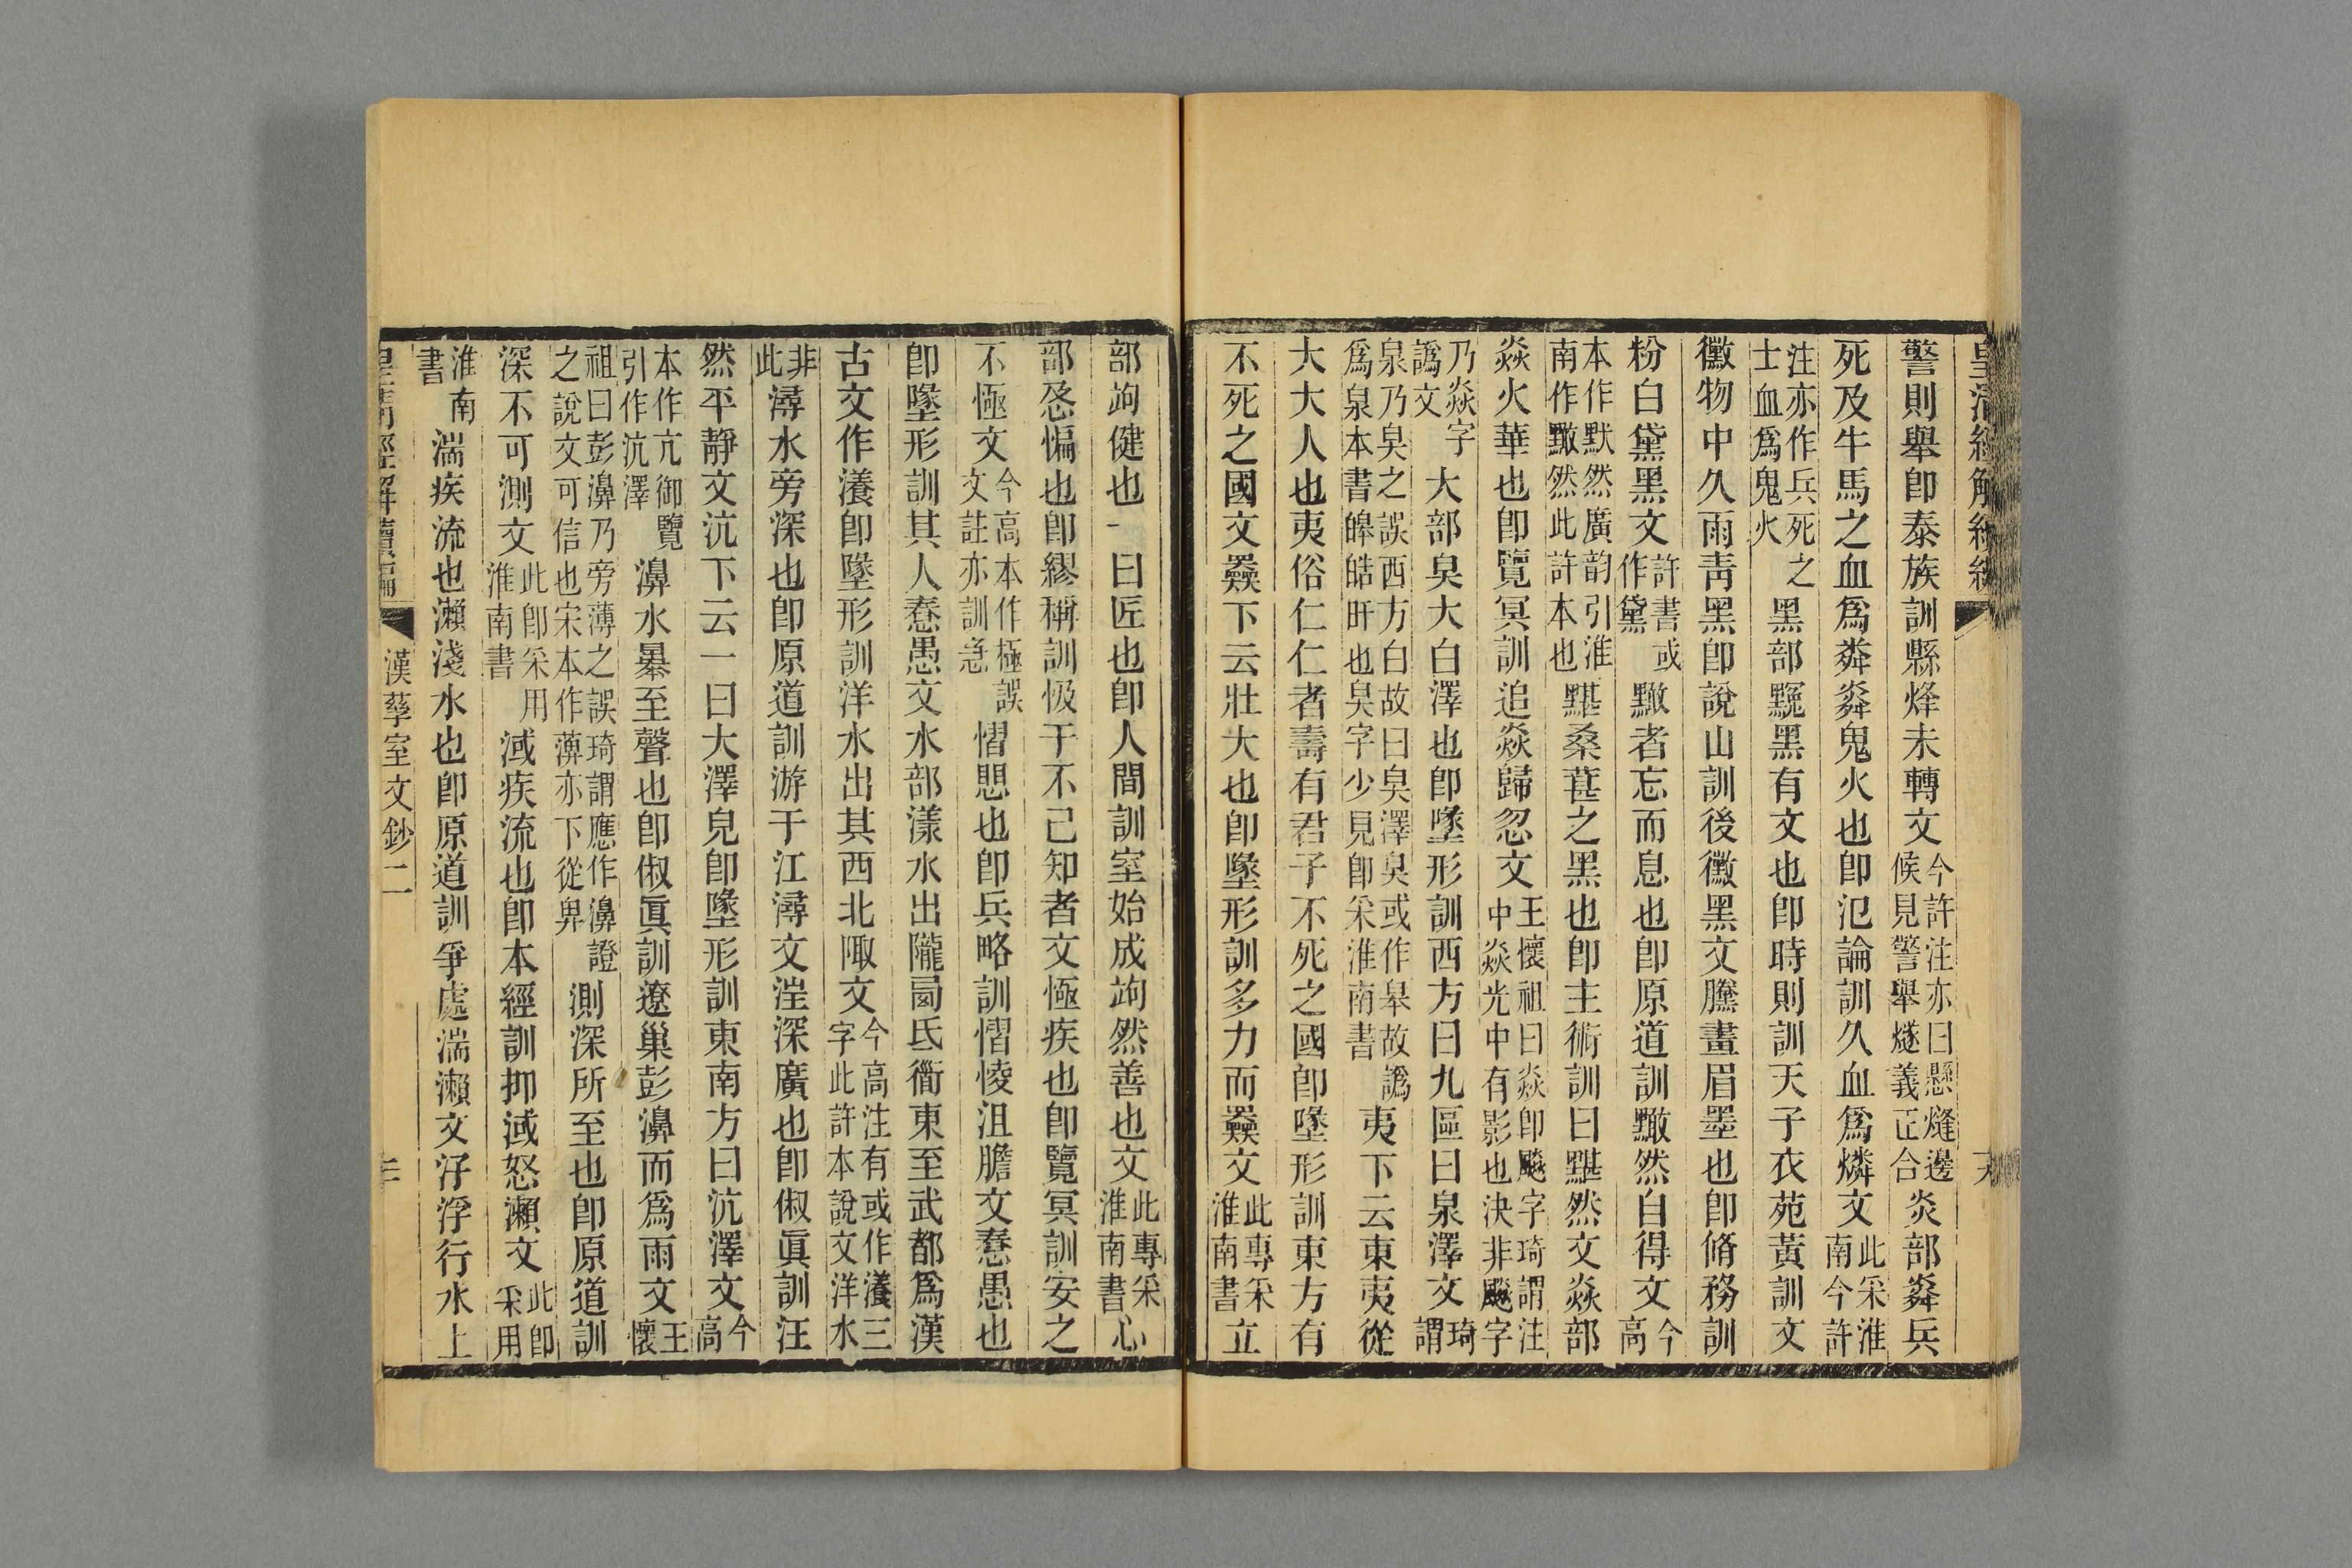 皇清經解續編
警則舉卽泰族訓縣烽未轉文今許注亦曰懸㷭邊候見警舉燧義正合炎部粦兵
死及牛馬之血爲粦粦鬼火也卽氾論訓久血爲燐文此采淮南今許
注亦作兵死之士血爲鬼火黑部黫黑有文也卽時則訓天子衣苑黃訓文
黴物中久雨靑黑卽說山訓後黴黑文黱畫眉墨也卽脩務訓
粉白黛黑文許書或作黛黰者忘而息也卽原道訓黰然自得文今高
本作默然廣韵引淮南作黰然此許本也黮桑葚之黑也卽主術訓曰黮然文焱部
焱火華也卽覽冥訓追焱歸忽文王懷祖曰焱卽飇字琦謂注中焱光中有影也決非飇字
乃焱字譌文大部臭大白澤也卽墬形訓西方曰九區曰泉澤文琦謂
泉乃臭之誤西方白故曰臭澤臭或作皋故譌爲泉本書皞皓旰也臭字少見卽采淮南書夷下云東夷從
大大人也夷俗仁仁者壽有君子不死之國卽墬形訓東方有
不死之國文奰下云壯大也卽墬形訓多力而奰文此專采淮南書立
部竘健也一曰匠也卽人間訓室始成竘然善也文此專采淮南書心
部恩惼也卽繆稱訓忣于不己知者文極疾也卽覽冥訓安之
不極文今高本作極誤文註亦訓急慴思也卽兵略訓慴悷沮膽文惷愚也
卽墬形訓其人惷愚文水部漾水出隴㢴氐衜東至武都爲漢
古文作瀁卽墬形訓洋水出其西北陬文今高注有或作瀁三字此許本說文洋水
非此潯水旁深也卽原道訓游于江潯文湟深廣也卽俶眞訓汪
然平靜文沆下云一曰大澤皃卽墬形訓東南方曰沆澤文今高
本作亢御覽引作沆澤濞水暴至聲也卽俶眞訓遼巢彭濞而爲雨文王懷
祖曰彭濞乃旁薄之誤琦謂應作濞證之說文可信也宋本作薄亦下從畀測深所至也卽原道訓
深不可測文此卽采用淮南書淢疾流也卽本經訓抑淢怒瀨文此卽采用
淮南書湍疾流也瀨淺水也卽原道訓爭處湍瀨文汓浮行水上
皇淸經解續編
漢孳室文鈔二